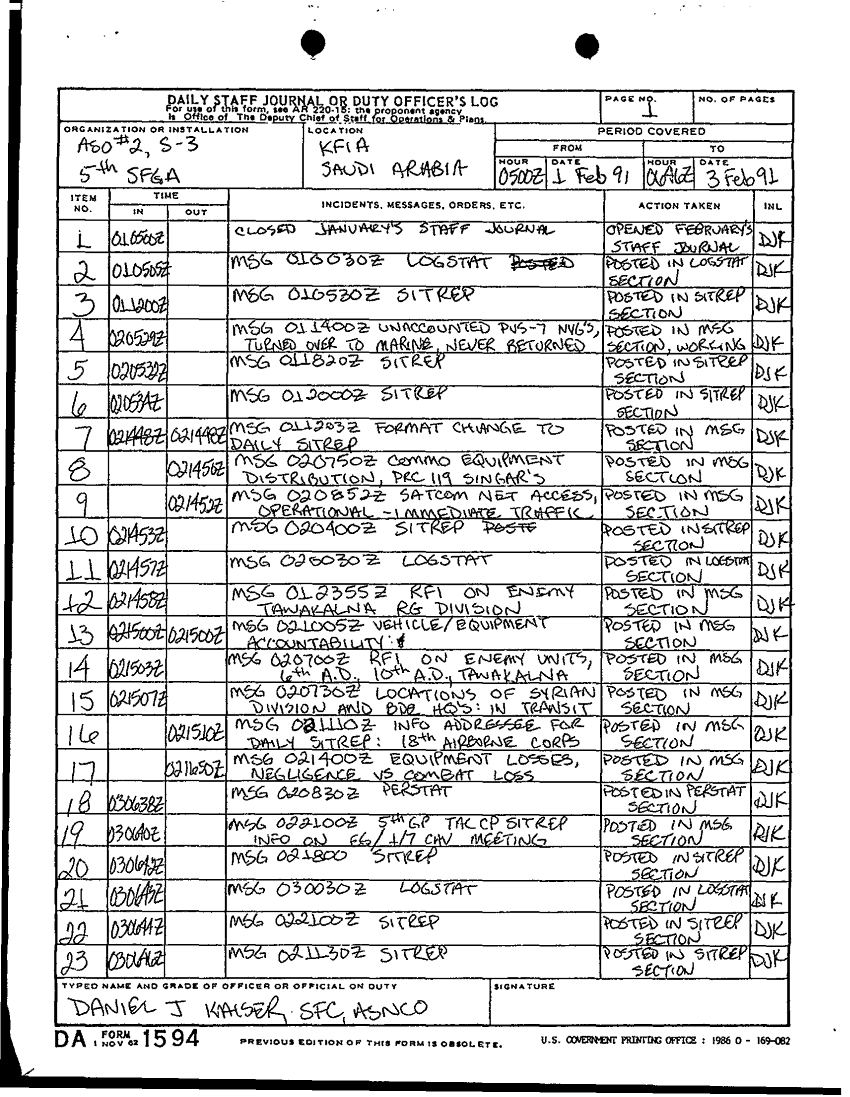 DAILY STAFF JOURNAL OR DUTY OFFICER'S LOG
For use of this form, see AR 220-15; the proponent agency
is Office of The Deputy Chief of Staff for Operations & Plans.
PAGE NO.
1
NO. OF PAGES
ORGANIZATION OR INSTALLATION
ASO #2, S-3
5th SFGA
LOCATION
KFIA
SAUDI ARABIA
PERIOD COVERED
FROM TO
HOUR DATE HOUR DATE
0500Z 1 Feb 91 3 Feb 91
ITEM NO. TIME INCIDENTS, MESSAGES, ORDERS, ETC. ACTION TAKEN INL
IN OUT
1 010500Z CLOSED JANUARY'S STAFF JOURNAL OPENED FEBRUARY'S DJK
STAFF JOURNAL
2 010505Z MSG 010030Z LOGSTAT POSTED POSTED IN LOGSTAT DJK
SECTION
3 011200Z MSG 010530Z SITREP POSTED IN SITREP DJK
SECTION
4 020529Z MSG 011400Z UNACCOUNTED PVS-7 NVG'S, POSTED IN MSG DJK
TURNED OVER TO MARINE, NEVER RETURNED SECTION, WORKING
5 020532Z MSG 011820Z SITREP POSTED IN SITREP DJK
SECTION
6 020534Z MSG 012000Z SITREP POSTED IN SITREP DJK
SECTION
7 021448Z 021448Z MSG 011203Z FORMAT CHANGE TO POSTED IN MSG DJK
DAILY SITREP SECTION
8 021450Z MSG 020750Z COMMO EQUIPMENT POSTED IN MSG DJK
DISTRIBUTION, PRC 119 SINGAR'S SECTION
9 021452Z MSG 020852Z SATCOM NET ACCESS, POSTED IN MSG DJK
OPERATIONAL - IMMEDIATE TRAFFIC SECTION
10 021453Z MSG 020400Z SITREP POSTE POSTED IN SITREP DJK
SECTION
11 021457Z MSG 020030Z LOGSTAT POSTED IN LOGSTAT DJK
SECTION
12 021458Z MSG 012355Z RFI ON ENEMY POSTED IN MSG DJK
TAWAKALNA RG DIVISION SECTION
13 021500Z 021500Z MSG 021005Z VEHICLE/EQUIPMENT POSTED IN MSG DJK
ACCOUNTABILITY SECTION
14 021503Z MSG 020700Z RFI ON ENEMY UNITS, POSTED IN MSG DJK
6th A.D., 10th A.D., TAWAKALNA SECTION
15 021507Z MSG 020730Z LOCATIONS OF SYRIAN POSTED IN MSG DJK
DIVISION AND BDE HQ'S: IN TRANSIT SECTION
16 021510Z MSG 021110Z INFO ADDRESSEE FOR POSTED IN MSG DJK
DAILY SITREP: 18th AIRBORNE CORPS SECTION
17 021650Z MSG 021400Z EQUIPMENT LOSSES, POSTED IN MSG DJK
NEGLIGENCE VS COMBAT LOSS SECTION
18 030638Z MSG 020830Z PERSTAT POSTED IN PERSTAT DJK
SECTION
19 030640Z MSG 022100Z 5th GP TAC CP SITREP POSTED IN MSG DJK
INFO ON MEETING SECTION
20 030642Z MSG 021800 SITREP POSTED IN SITREP DJK
SECTION
21 030643Z MSG 030030Z LOGSTAT POSTED IN LOGSTAT DJK
SECTION
22 030644Z MSG 022100Z SITREP POSTED IN SITREP DJK
SECTION
23 030646Z MSG 021130Z SITREP POSTED IN SITREP DJK
SECTION
TYPED NAME AND GRADE OF OFFICER OR OFFICIAL ON DUTY SIGNATURE
DANIEL J KAISER, SFC, ASNCO
DA FORM 1594
1 NOV 62
PREVIOUS EDITION OF THIS FORM IS OBSOLETE.
U.S. GOVERNMENT PRINTING OFFICE : 1986 O - 169-082